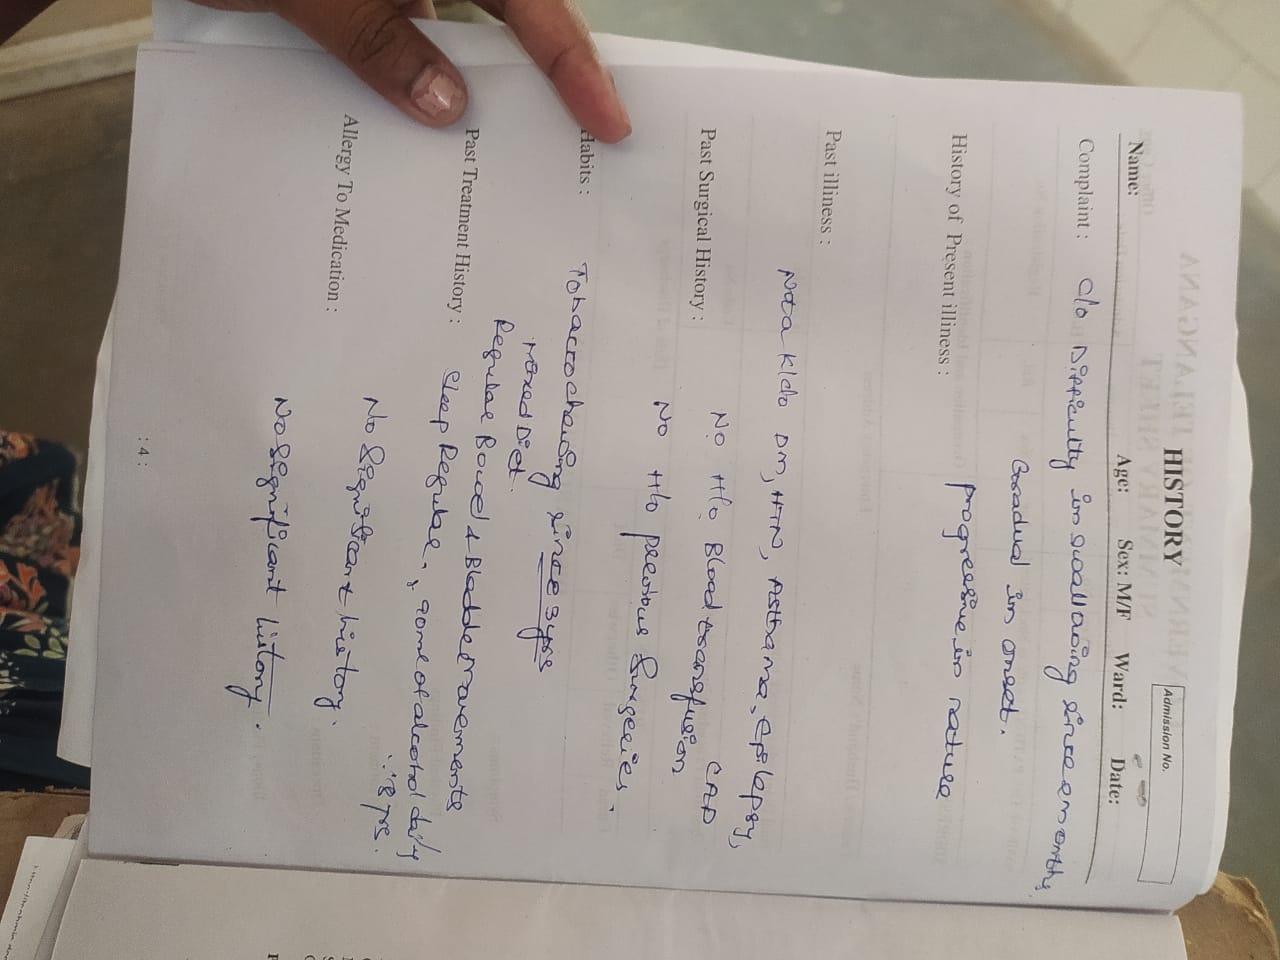 HISTORY
Admission No.
Name: Age: Sex: M/F Ward: Date:
Complaint : c/o Difficulty in swallowing since months
Gradual in onset.
History of Present illness : progressive in nature
Past illness :
Not a k/c/o DM, HTN, Asthama, Epilepsy,
CAD
Past Surgical History : No H/o Blood transfusion
No H/o previous Surgeries.
Habits :
Tobacco chewing since 3 yrs
Mixed Diet.
Regular Bowel & Bladder movements
Past Treatment History : Sleep Regular, 90ml of alcohol daily
8 yrs.
No Significant history.
Allergy To Medication :
No Significant history.
: 4 :